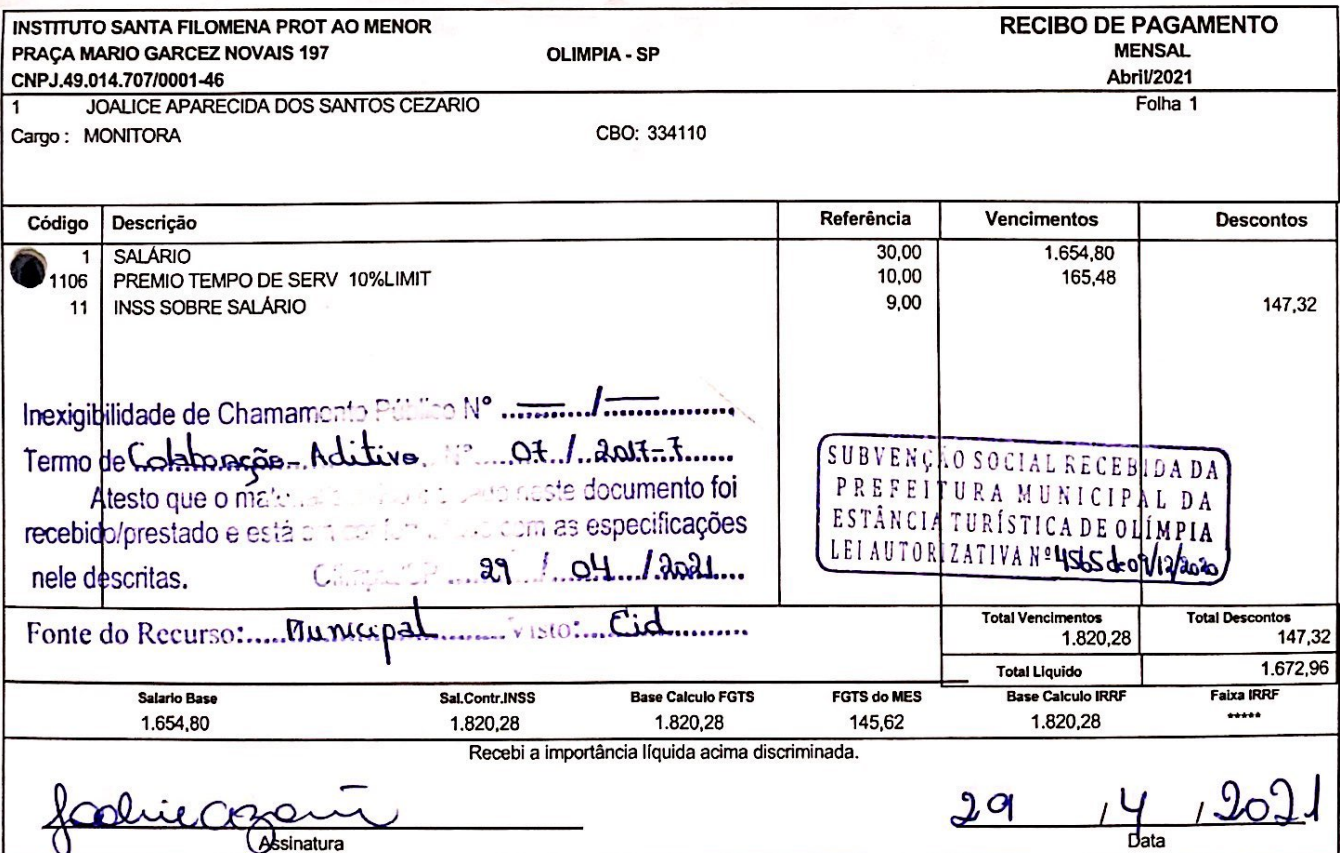 INSTITUTO SANTA FILOMENA PROT AO MENOR RECIBO DE PAGAMENTO
PRAÇA MARIO GARCEZ NOVAIS 197 OLIMPIA - SP MENSAL
CNPJ.49.014.707/0001-46 Abril/2021
1 JOALICE APARECIDA DOS SANTOS CEZARIO Folha 1
Cargo : MONITORA CBO: 334110
Código Descrição Referência Vencimentos Descontos
1 SALÁRIO 30,00 1.654,80
1106 PREMIO TEMPO DE SERV 10%LIMIT 10,00 165,48
11 INSS SOBRE SALÁRIO 9,00 147,32
Inexigibilidade de Chamamento Público Nº ........../...............
Termo de Colaboração - Aditivo Nº 07 / 2017-7
Atesto que o neste documento foi
recebido/prestado e está com as especificações
nele descritas. Olímpia/SP 29 / 04 / 2021
SUBVENÇÃO SOCIAL RECEBIDA DA
PREFEITURA MUNICIPAL DA
ESTÂNCIA TURÍSTICA DE OLÍMPIA
LEI AUTORIZATIVA Nº 4565 de 09/12/2020
Fonte do Recurso: Municipal Visto: Cid
Total Vencimentos Total Descontos
1.820,28 147,32
Total Liquido 1.672,96
Salario Base Sal.Contr.INSS Base Calculo FGTS FGTS do MES Base Calculo IRRF Faixa IRRF
1.654,80 1.820,28 1.820,28 145,62 1.820,28 *****
Recebi a importância líquida acima discriminada.
29 / 4 / 2021
Assinatura Data